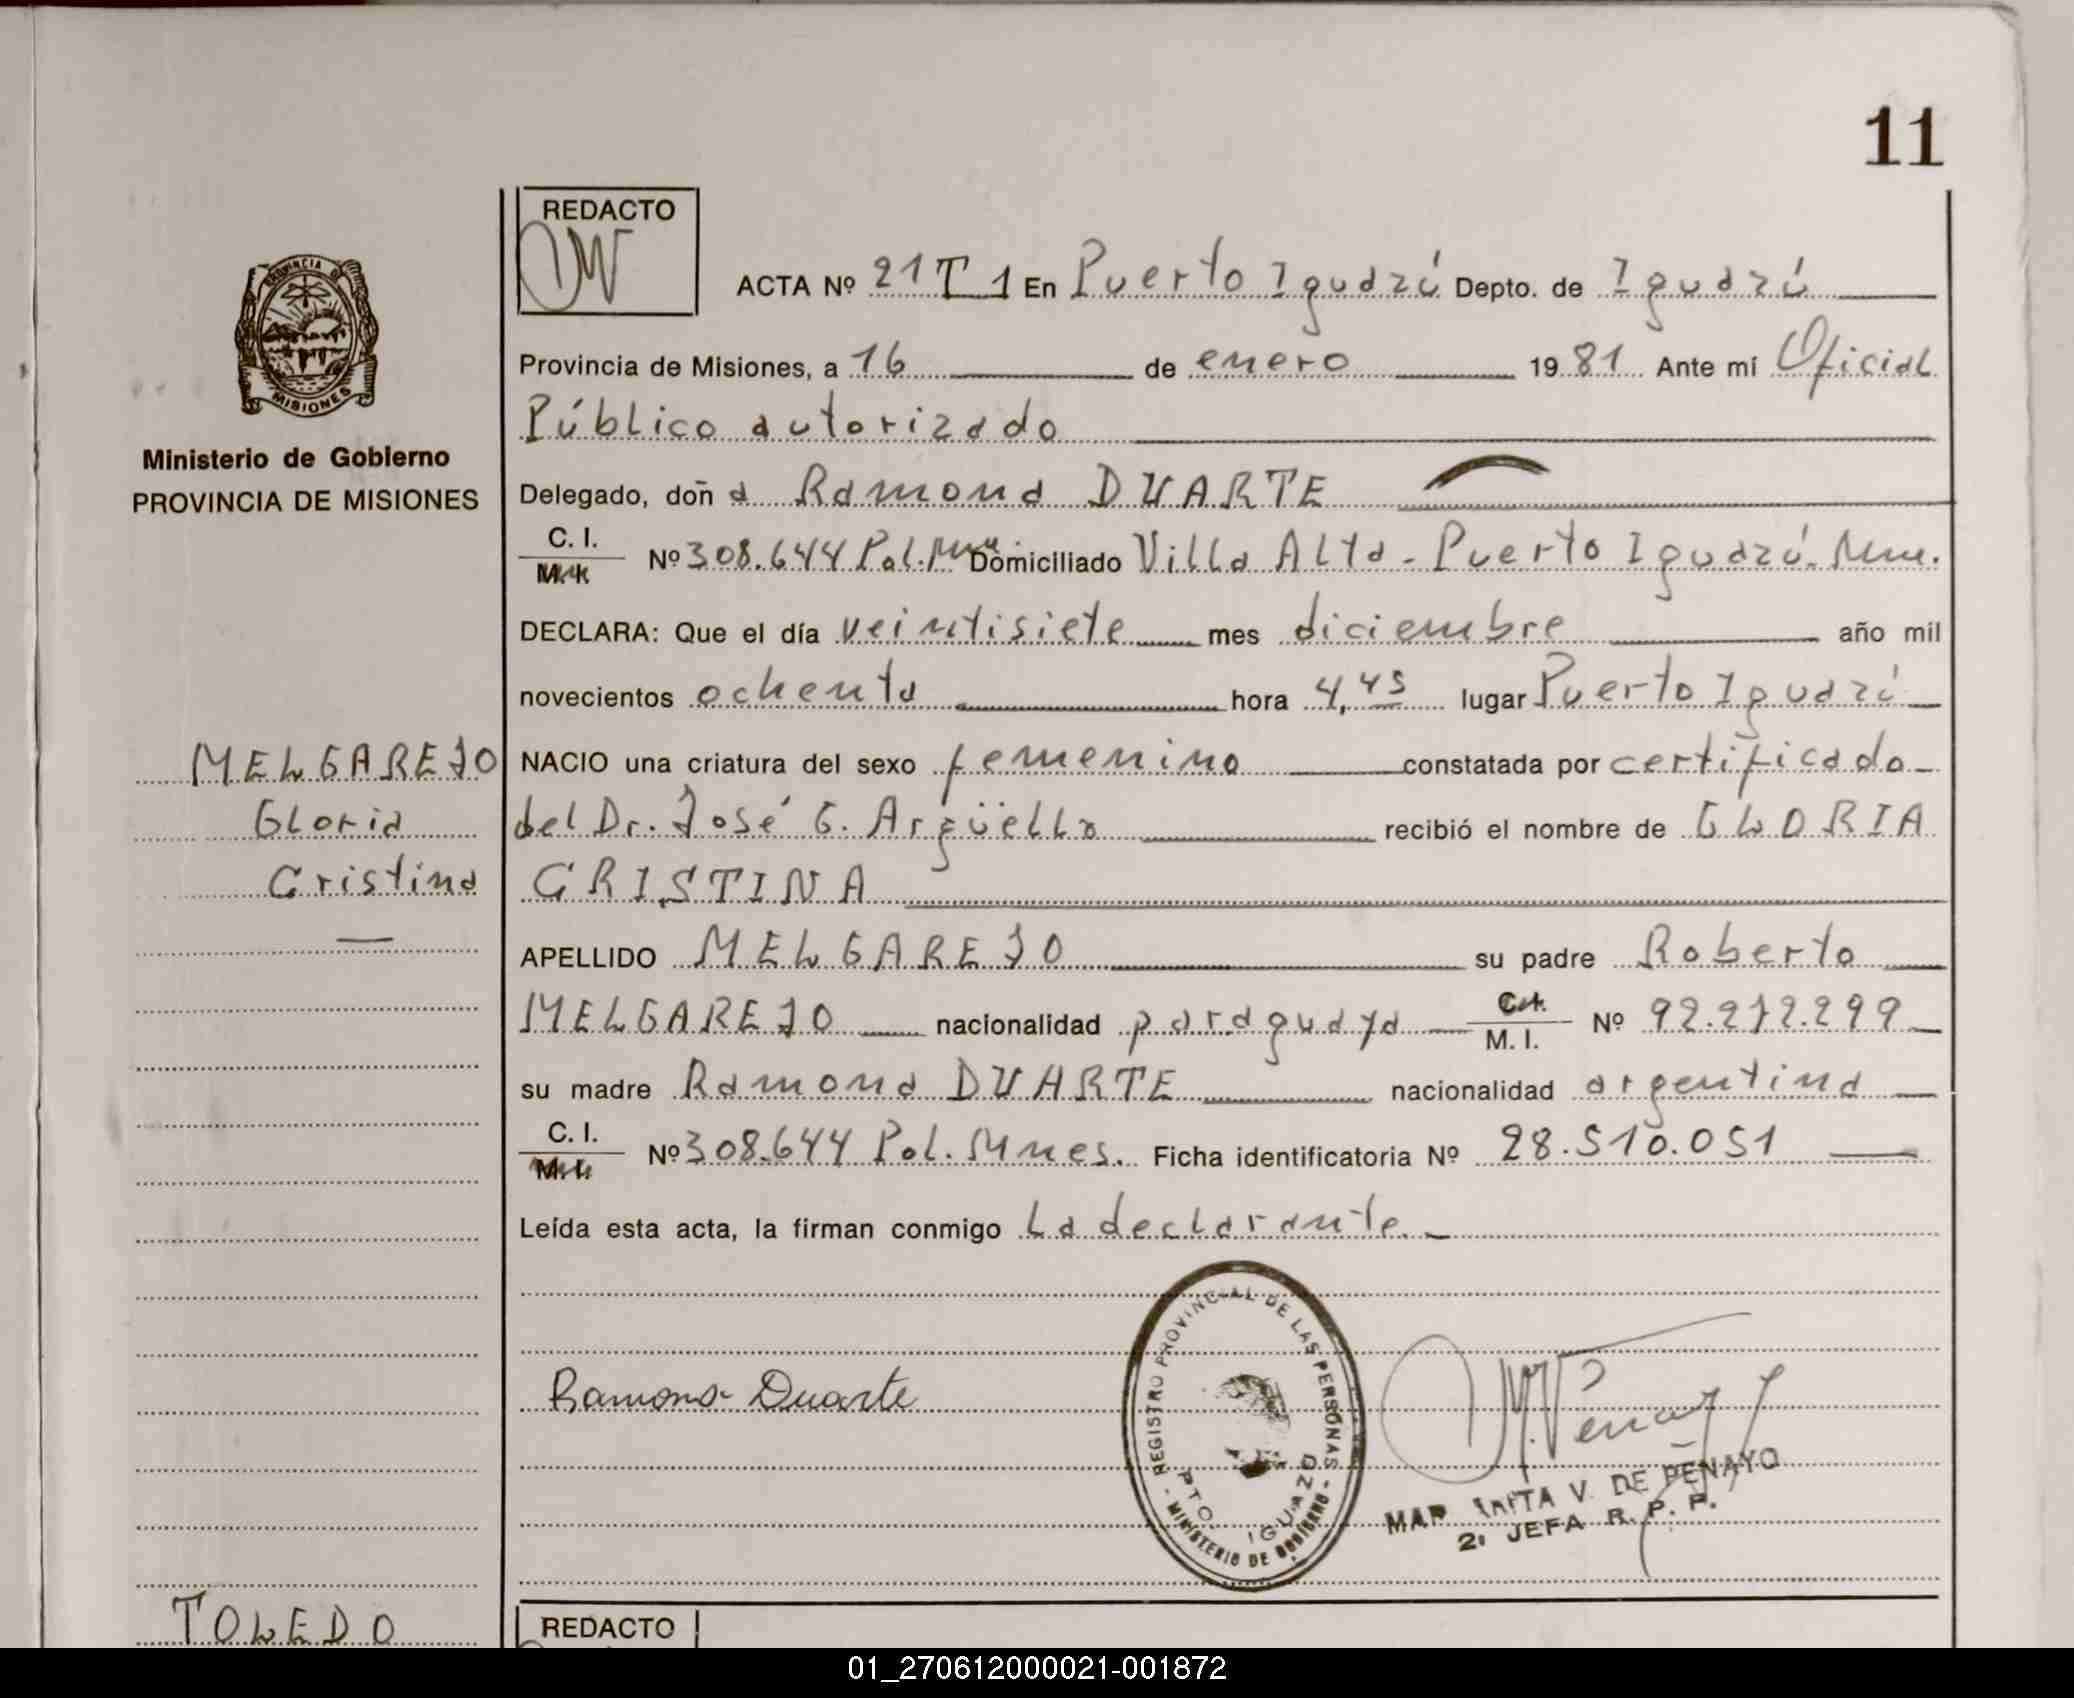 11
REDACTO
ACTA Nº 21 T 1 En Puerto Iguazú Depto. de Iguazú
Provincia de Misiones, a 16 de enero 1981 Ante mí Oficial
Público autorizado
Ministerio de Gobierno
PROVINCIA DE MISIONES
Delegado, doña Ramona DUARTE
C. I.
M. I. Nº 308.644 Pol. Mnes. Domiciliado Villa Alta - Puerto Iguazú. Mnes.
DECLARA: Que el día veintisiete mes diciembre año mil
novecientos ochenta hora 4,45 lugar Puerto Iguazú
MELGAREJO
Gloria
Cristina
NACIO una criatura del sexo femenino constatada por certificado
del Dr. José G. Argüello recibió el nombre de GLORIA
CRISTINA
APELLIDO MELGAREJO su padre Roberto
MELGAREJO nacionalidad paraguaya C. I.
M. I. Nº 92.272.299
su madre Ramona DUARTE nacionalidad argentina
C. I.
M. I. Nº 308.644 Pol. Mnes. Ficha identificatoria Nº 28.510.051
Leída esta acta, la firman conmigo La declarante.-
Ramona Duarte
REGISTRO PROVINCIAL DE LAS PERSONAS
PTO. IGUAZU
MINISTERIO DE GOBIERNO
V. DE PENAYO
JEFA R. P. P.
TOLEDO
REDACTO
01_270612000021-001872